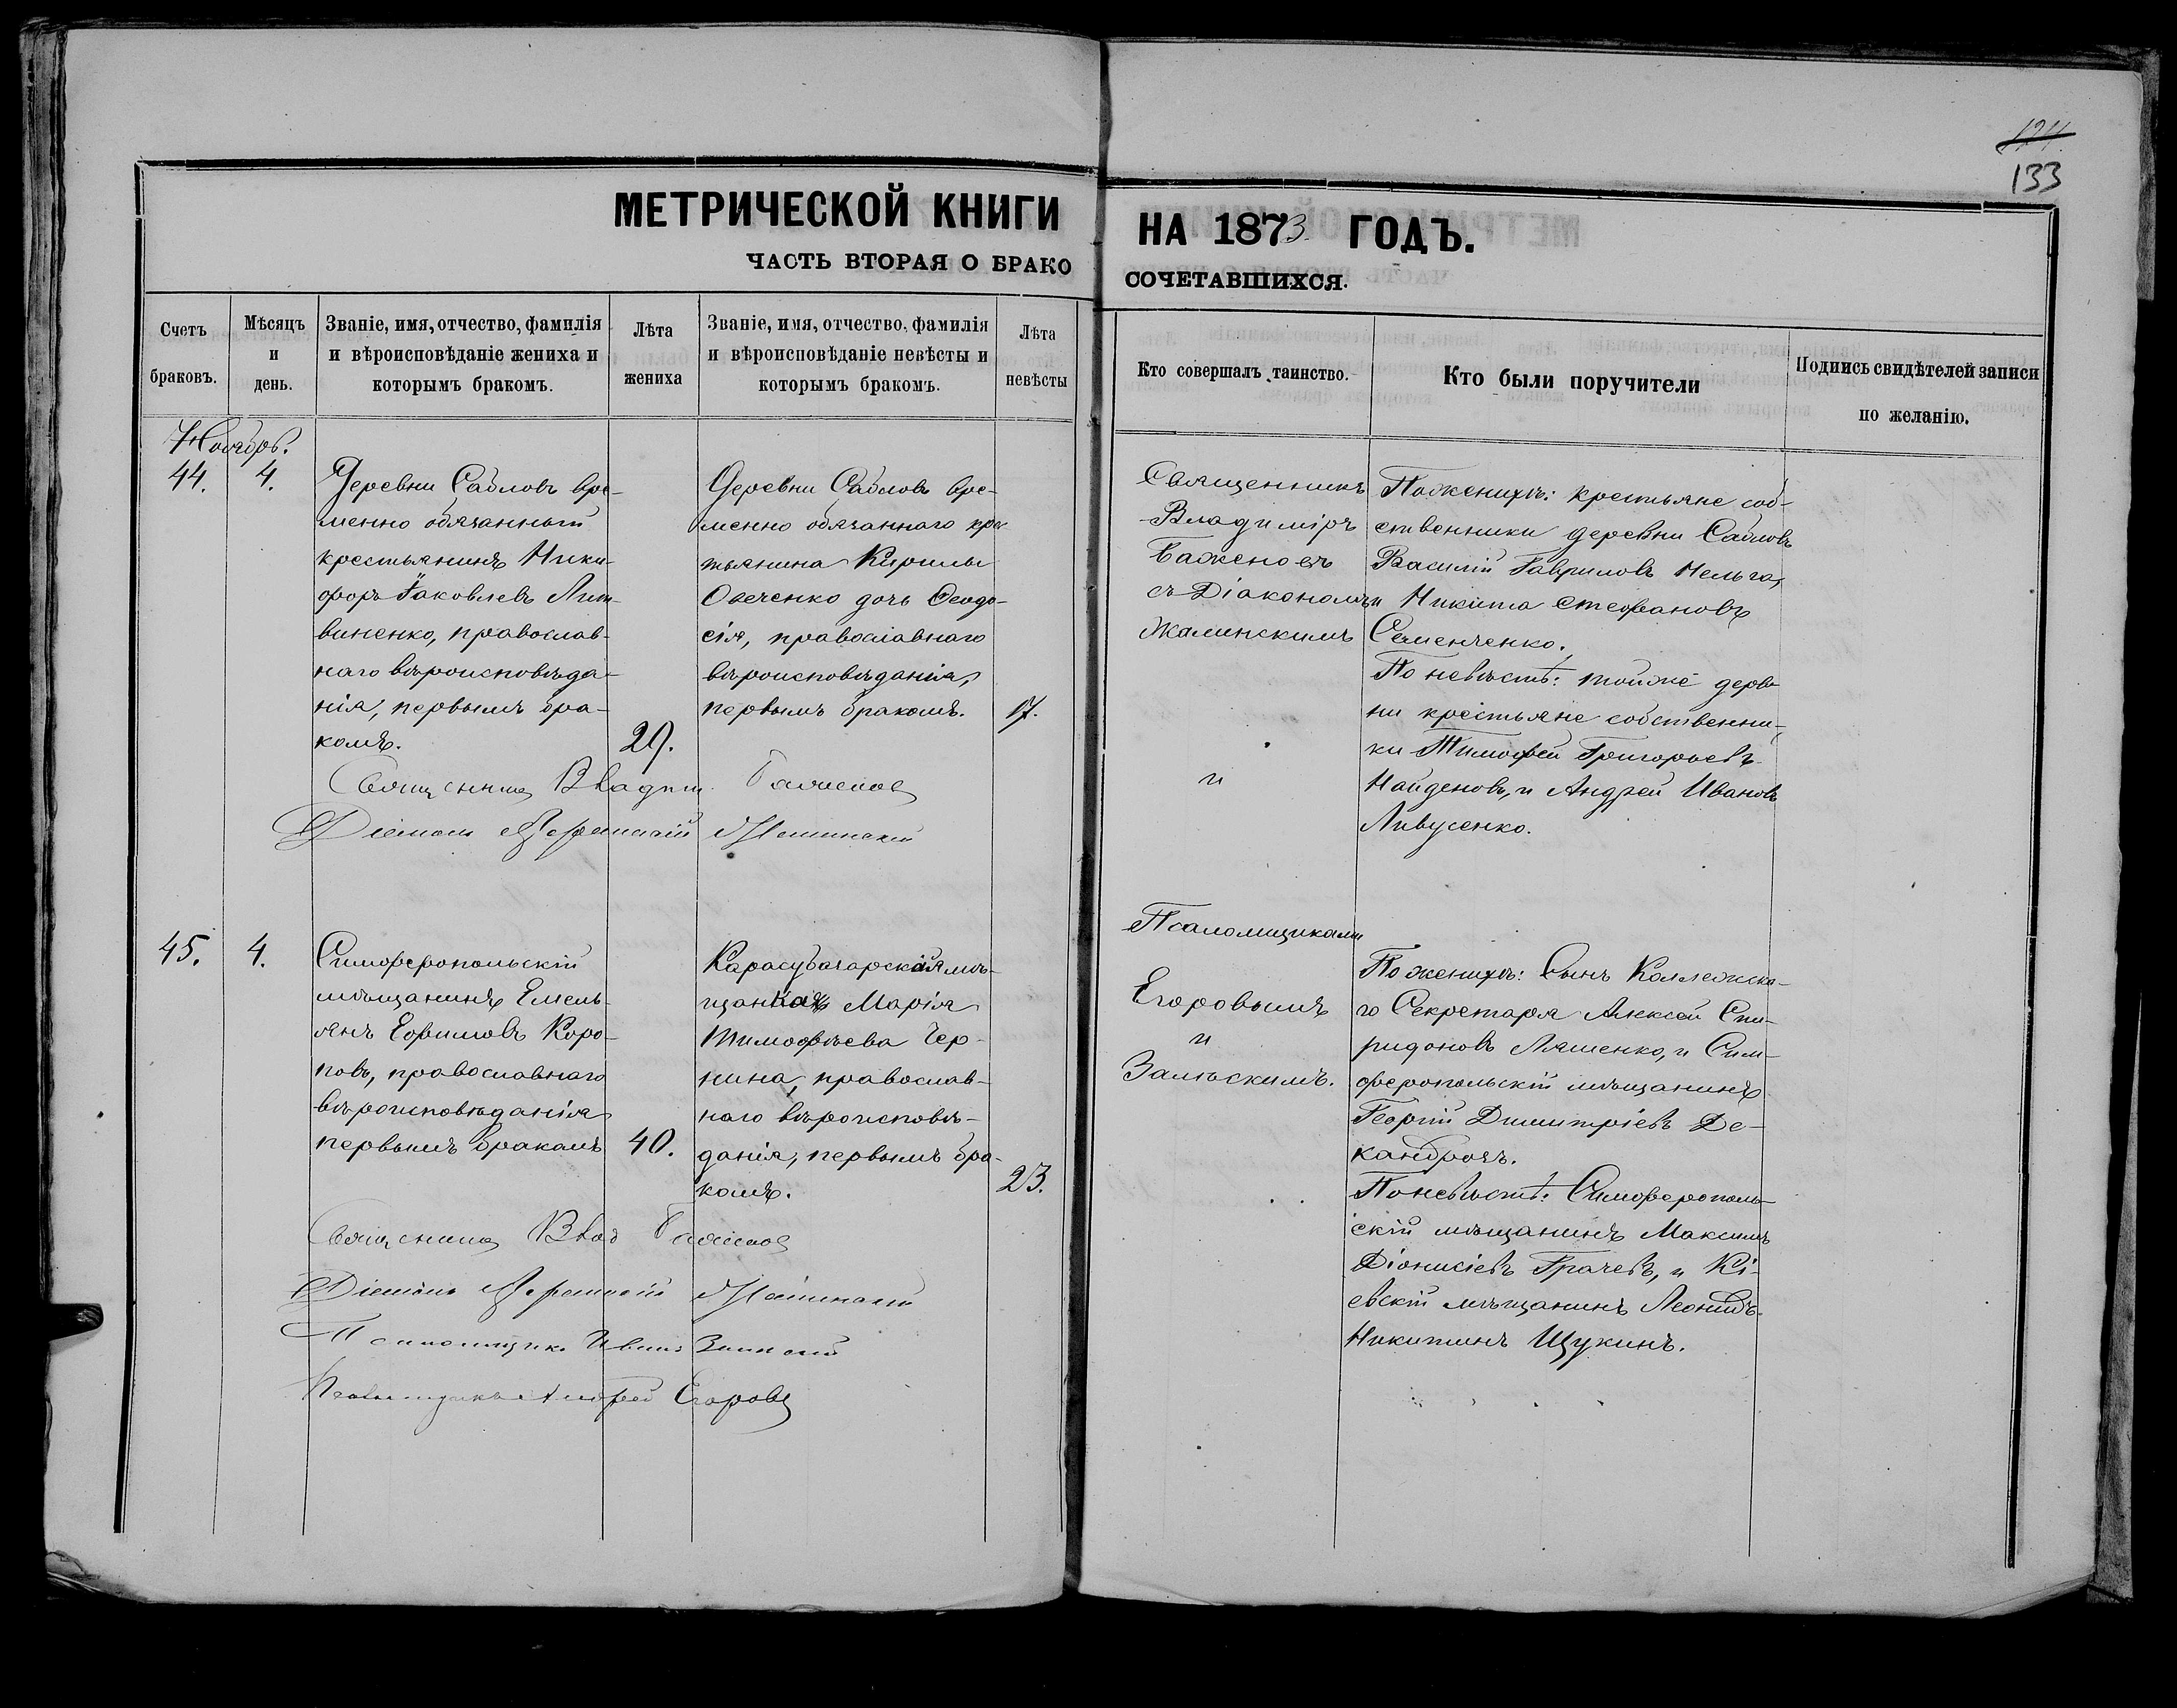 124.
133
МЕТРИЧЕСКОЙ КНИГИ НА 1873 ГОДЪ.
ЧАСТЬ ВТОРАЯ О БРАКОСОЧЕТАВШИХСЯ.
Счетъ браковъ.
Мѣсяцъ и день.
Званіе, имя, отчество, фамилія
и вѣроисповѣданіе жениха и
которымъ бракомъ.
Лѣта жениха
Званіе, имя, отчество, фамилія
и вѣроисповѣданіе невѣсты и
которымъ бракомъ.
Лѣта невѣсты
Кто совершалъ таинство.
Кто были поручители
Подпись свидѣтелей записи
по желанію.
Ноябрь.
44. 4.
Деревни Сабловъ вре-
менно обязанный
крестьянинъ Ники-
форъ Іаковлевъ Лит-
виненко, православ-
наго вѣроисповѣда-
нія, первымъ бра-
комъ.
29.
Деревни Сабловъ вре-
менно обязаннаго крес
тьянина Кирилы
Овеченко дочь Ѳеодо-
сія, православнаго
вѣроисповѣданія,
первымъ бракомъ.
17.
Священникъ Владим. Баженовъ
Діаконъ Жалинскій
Священникъ
Владиміръ
Баженовъ
съ Діакономъ
Жалинскимъ
и
Псаломщиками
Егоровымъ
и
Залѣскимъ.
По женихѣ: крестьяне соб-
ственники деревни Сабловъ
Василій Гавриловъ Нельга,
и Никита Стефановъ
Семенченко.
По невѣстѣ: тойже дерев
ни крестьяне собственни-
ки Тимофей Григорьевъ
Найденовъ, и Андрей Ивановъ
Ливусенко.
45. 4.
Симферопольскій
мѣщанинъ Емель-
янъ Ефимовъ Коро-
повъ, православнаго
вѣроисповѣданія
первымъ бракомъ
40.
Карасубазарская мѣ-
щанка Марія
Тимофѣева Чер-
нина, православ-
наго вѣроисповѣ-
данія, первымъ бра-
комъ.
23.
Священникъ Влад Баженовъ
Діаконъ Жалинскій
Псаломщикъ Иванъ
Псаломщикъ Андрей Егоровъ
По женихѣ: Сынъ Коллежска-
го Секретаря Алексѣй Спи-
ридоновъ Ляшенко, и Сим-
феропольскій мѣщанинъ
Георгій Димитріевъ Де-
кандрозъ.
По невѣстѣ: Симферополь-
скій мѣщанинъ Максимъ
Діонисіевъ Грачевъ, и Кі-
евскій мѣщанинъ Леонидъ
Никитинъ Щукинъ.